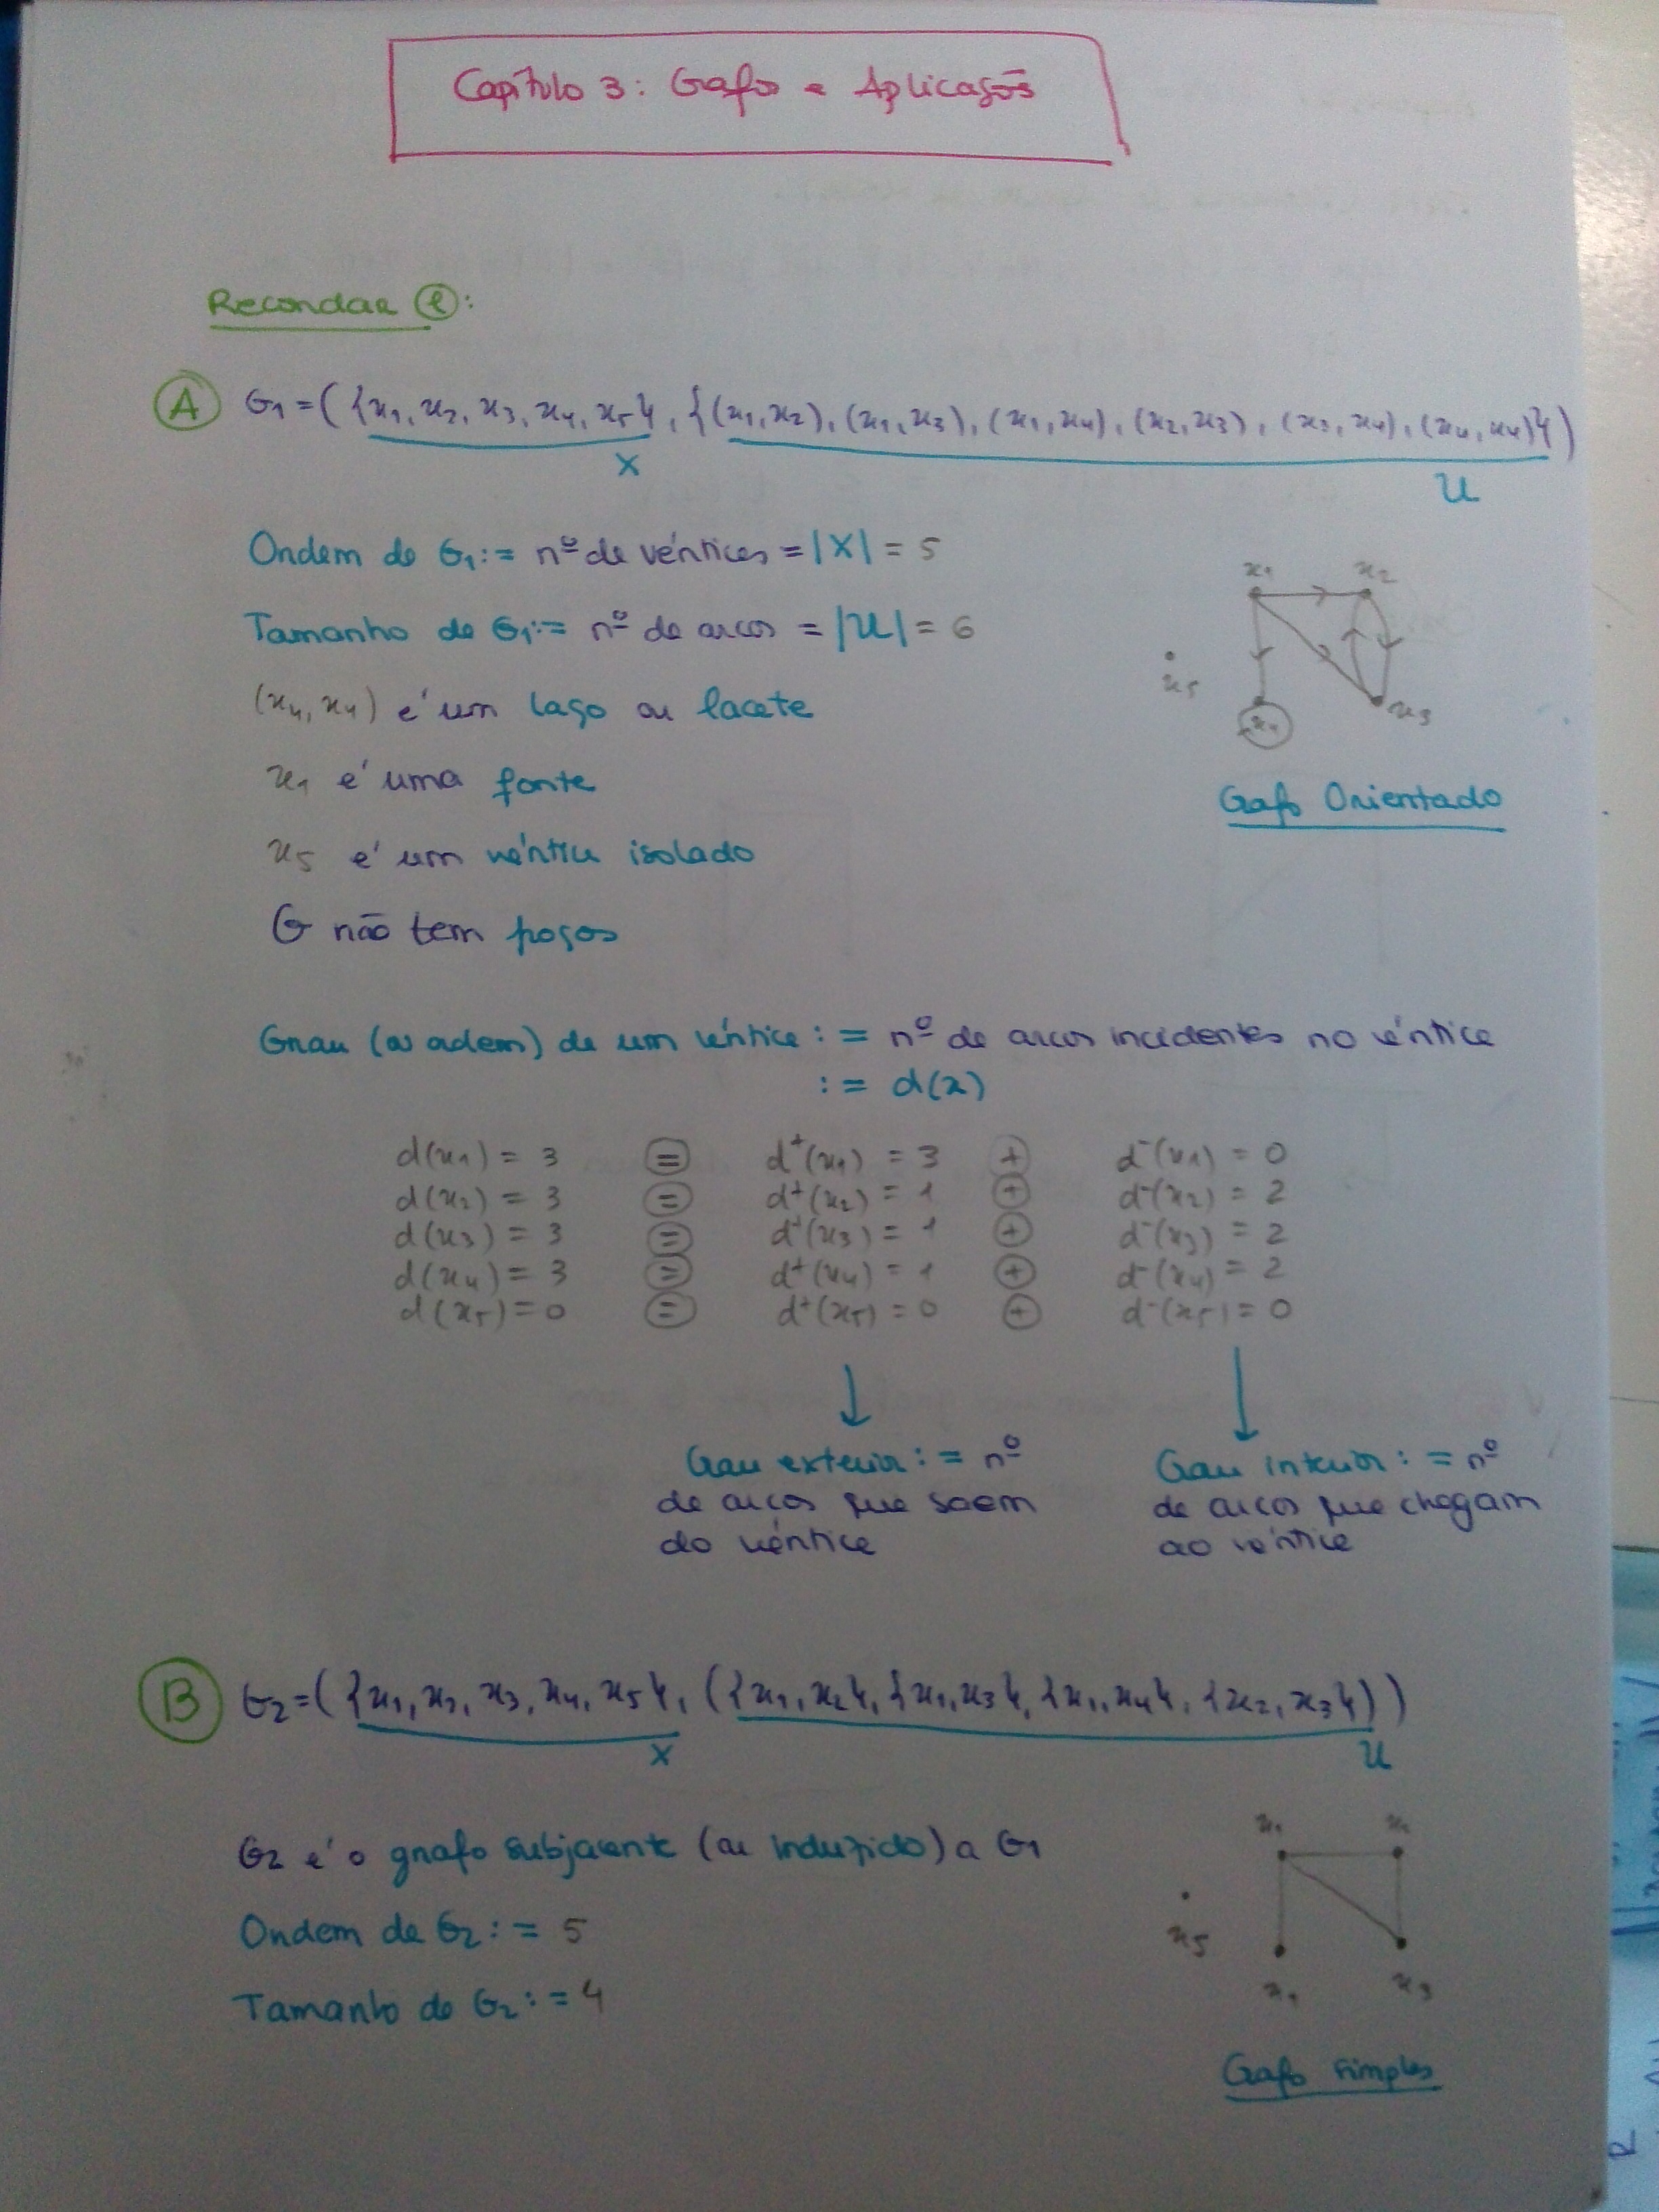 Capítulo 3: Grafos e Aplicações
Recordar ①:
Ⓐ G1 = ({x1, x2, x3, x4, x5}, {(x1,x2), (x1,x3), (x1,x4), (x2,x3), (x3,x4), (x4,x4)})
X
U
Ordem de G1 := nº de vértices = |X| = 5
Tamanho de G1 := nº de arcos = |U| = 6
(x4, x4) é um laço ou lacete
x1 é uma fonte
x5 é um vértice isolado
G não tem poços
x1 x2
x5
x4 x3
Grafo Orientado
Grau (ou ordem) de um vértice := nº de arcos incidentes no vértice
:= d(x)
d(x1) = 3 = d+(x1) = 3 + d-(x1) = 0
d(x2) = 3 = d+(x2) = 1 + d-(x2) = 2
d(x3) = 3 = d+(x3) = 1 + d-(x3) = 2
d(x4) = 3 = d+(x4) = 1 + d-(x4) = 2
d(x5) = 0 = d+(x5) = 0 + d-(x5) = 0
Grau exterior := nº
de arcos que saem
do vértice
Grau interior := nº
de arcos que chegam
ao vértice
Ⓑ G2 = ({x1, x2, x3, x4, x5}, ({x1, x2}, {x1, x3}, {x1, x4}, {x2, x3}))
X
U
G2 é o grafo subjacente (ou induzido) a G1
Ordem de G2 := 5
Tamanho de G2 := 4
x1 x2
x5
x4 x3
Grafo simples